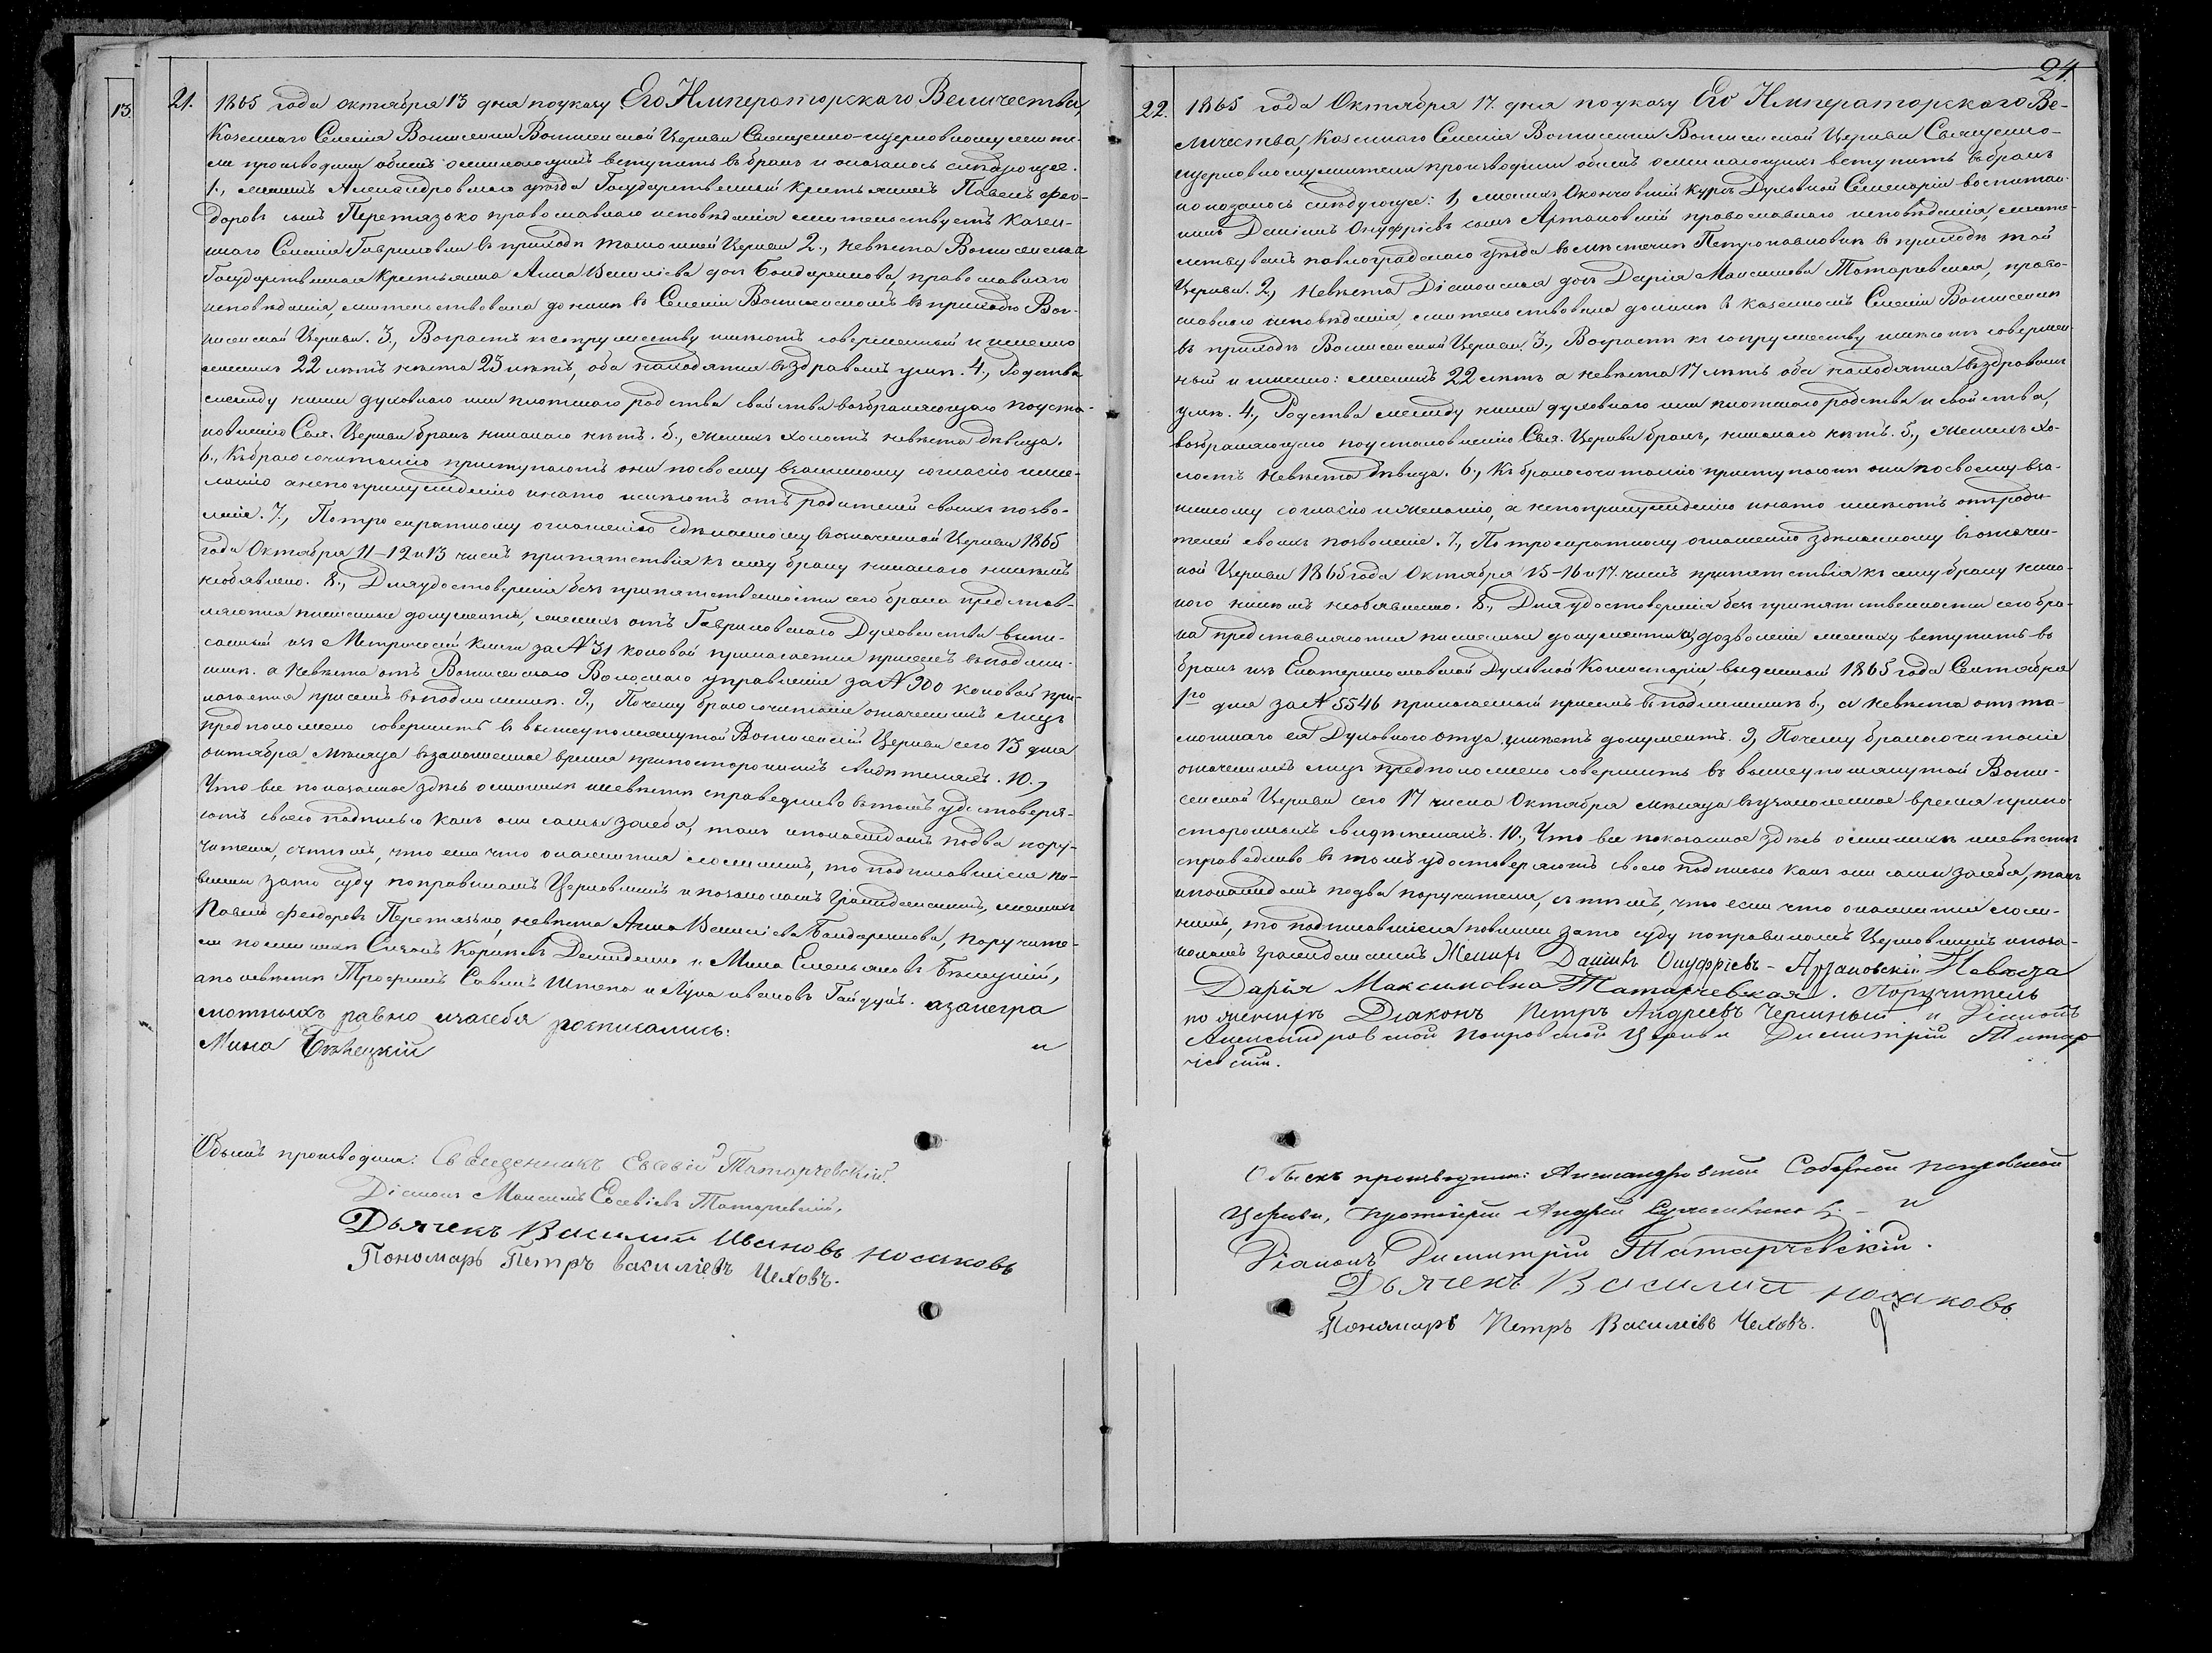 13.
21. 1865 года октября 13 дня по указу Его Императорскаго Величества,
Казеннаго Селенія Вознесенки Вознесенской Церкви Священно-церковнослужите-
ли производили обыскъ о желающихъ вступить въ бракъ и оказалось слѣдующее.
1., женихъ Александровскаго уѣзда Государственный крестьянинъ Павелъ Фео-
доровъ сынъ Перетязько православнаго исповѣданія жительствуетъ Казен-
наго Селенія Гавриловки въ приходѣ тамошней Церкви 2., невѣста Вознесенская
Государственная Крестьянка Анна Василіева дочь Бондаренкова, православнаго
исповѣданія, жительствовала донынѣ въ Селеніи Вознесенскомъ въ приходѣ Воз-
несенской Церкви. 3., Возрастъ къ супружеству имѣютъ совершенный и именно
женихъ 22 лѣтъ невѣста 23 лѣтъ, оба находятся въ здравомъ умѣ. 4., Родства
между ними духовнаго или плотскаго родства свойства возбраняющаго по уста-
новленію Свя. Церкви бракъ никакого нѣтъ. 5., женихъ холостъ невѣста дѣвица.
6., Къ бракосочитанію приступаютъ они по своему взаимному согласію и же-
ланію а не по принужденію и на то имѣютъ отъ родителей своихъ позво-
леніе. 7., По троекратному оглашенію сдѣланному въ означенной Церкви 1865
года Октября 11-12 и 13 чиселъ припятствія къ сему браку никакого никѣмъ
необявлено. 8., Для удостоверенія безъ припятственности сего брака представ-
ляются письменые документы, женихъ отъ Гавриловскаго Духовенства выпи-
санный изъ Метрической Книги за № 31 каковой прилагается при семъ въ подлин-
никѣ. а невѣста отъ Вознесенскаго Волоснаго управленія за № 900 каковой при-
лагается при семъ въ подлинникѣ. 9., Почему бракосочитаніе означенныхъ лицъ
предположено совершить въ вышеупомянутой Вознесенскій Церкви сего 13 дня
октября мѣсяца въ законное время при постороннихъ свидѣтеляхъ. 10.,
Что все показанное здѣсь о женихѣ и невѣсте справедливо въ томъ удостоверя-
ютъ своею подписью какъ они сами за себя, такъ и по каждомъ по два пору-
чителя, съ тѣмъ, что если что окажется ложнымъ, то подписавшіеся по-
винны за то суду по правиламъ Церковнымъ и по законамъ Гражданскимъ, женихъ
Павелъ Феодоровъ Перетязько, невѣста Анна Василіева Бондаренкова, поручите-
ли по женихѣ Сизонъ Корнѣевъ Демиденко и Мина Емельяновъ Бѣлецкій,
а по невѣсте Трофимъ Савинъ Шпека и Лука Ивановъ Гайдукъ. а за негра
мотныхъ равно и за себя росписались:
Мина Бѣлецкій и
Обыскъ производили: Священникъ Евсевій Татарчевскій.
Діаконъ Максимъ Евсевіевъ Татарчевскій,
Дьячекъ Василий Ивановъ Носаковъ
Пономарь Петръ Василіевъ Чеховъ.
24.
22. 1865 года Октября 17. дня по указу Его Императорскаго Ве-
личества, Казеннаго Селенія Вознесенки Вознесенской Церкви Священно-
церковнослужители производили обыскъ о желающихъ вступить въ бракъ
и оказалось слѣдующее: 1, женихъ Окончившій курсъ Духовной Семенаріи воспитан-
никъ Даніилъ Онуфріевъ сынъ православнаго исповѣданія, житель-
ствуетъ павлоградскаго уѣзда въ мѣстечкѣ Петропавловкѣ въ приходѣ той
Церкви. 2., Невѣста Діаконская дочь Дарія Максимова Татарчевская, право-
славнаго исповѣданія, жительствовала донынѣ в казенномъ Селеніи Вознесенки
въ приходѣ Вознесенской Церкви. 3., Возрастъ къ супружеству имѣютъ совершен-
ный и именно: женихъ 22 лѣтъ а невѣста 17 лѣтъ оба находятся въ здравомъ
умѣ. 4., Родства между ними духовнаго или плотскаго родства и свойства,
возбраняющаго по установленію Свя. Церкви бракъ, никакого нѣтъ. 5., женихъ хо-
лостъ невѣста дѣвица. 6., Къ бракосочитанію приступаютъ они по своему вза-
имному согласію и желанію, а не по принужденію и на то имѣютъ отъ роди-
телей своихъ позволеніе. 7., По троекратному оглашенію здѣланному въ означен-
ной Церкви 1865 года Октября 15-16 и 17. чиселъ припятствія къ сему браку ника-
кого никѣмъ необявлено. 8., Для удостоверенія безъ припятственности сего бра-
ка представляются письменые документы а, дозволеніе жениху вступить въ
бракъ изъ Екатеринославской Духовной Консисторіи, выданный 1865 года Сентября
1го дня за № 5546 прилагаемый при семъ въ подлинникѣ б., а невѣста отъ та-
мошнаго ея Духовнаго отца имѣетъ документъ. 9, Почему бракосочитаніе
означенныхъ лицъ предположено совершить въ вышеупомянутой Возне-
сенской Церкви сего 17 числа Октября мѣсяца въ узаконенное время при по-
стороннихъ свидѣтеляхъ. 10., Что все показанное здѣсь о женихѣ и невѣстѣ
справедливо въ томъ удостоверяютъ своею подписью какъ они сами за себя, такъ
и по каждомъ по два поручителя, съ тѣмъ, что если что окажется лож-
нымъ, то подписавшіеся повинны за то суду по правиламъ Церковнымъ и по за-
конамъ гражданскимъ Женихъ Даніилъ Онуфріевъ - Невѣста
Дарія Максимовна Татарчевская. Поручитель
по женихѣ Діаконъ Петръ Андреевъ и Діаконъ
Александровской Покровской Церкви Димитрій Татар
чевскій.
Обыскъ производили: Александровской Соборной покровской
Церкви, протоіерей Андрей и
Діаконъ Димитрій Татарчевскій.
Дьячекъ Василий Носаковъ
Пономарь Петръ Василіевъ Чеховъ.